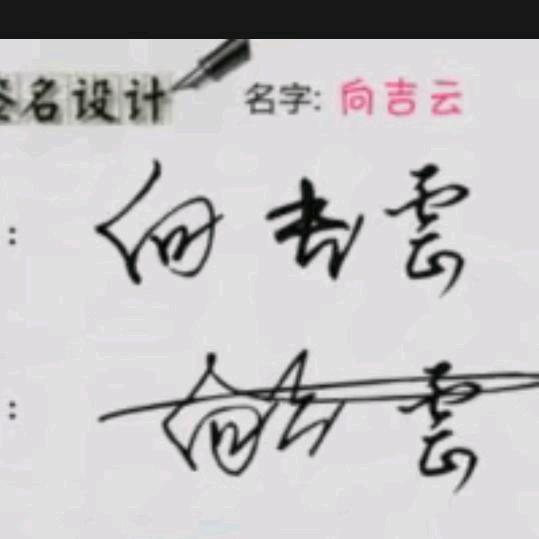 签名设计 名字: 向吉云
: 向吉雲
: 向吉雲